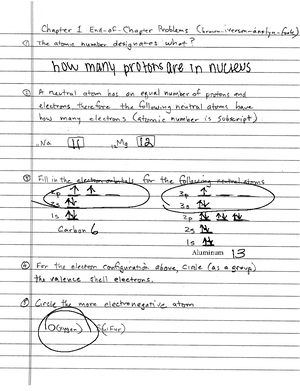 Chapter 1 End-of-Chapter Problems (brown-iverson-anslyn-foote)
① The atomic number designates what?
how many protons are in nucleus
② A neutral atom has an equal number of protons and
electrons, therefore the following neutral atoms have
how many electrons (atomic number is subscript)
₁₁Na 11 ₁₂Mg 12
③ Fill in the electron orbitals for the following neutral atoms
2p 3p
2s 3s
1s 2p
Carbon 6 2s
1s
Aluminum 13
④ For the electron configuration above, circle (as a group)
the valence shell electrons.
⑤ Circle the more electronegative atom
O(oxygen) S(sulfur)